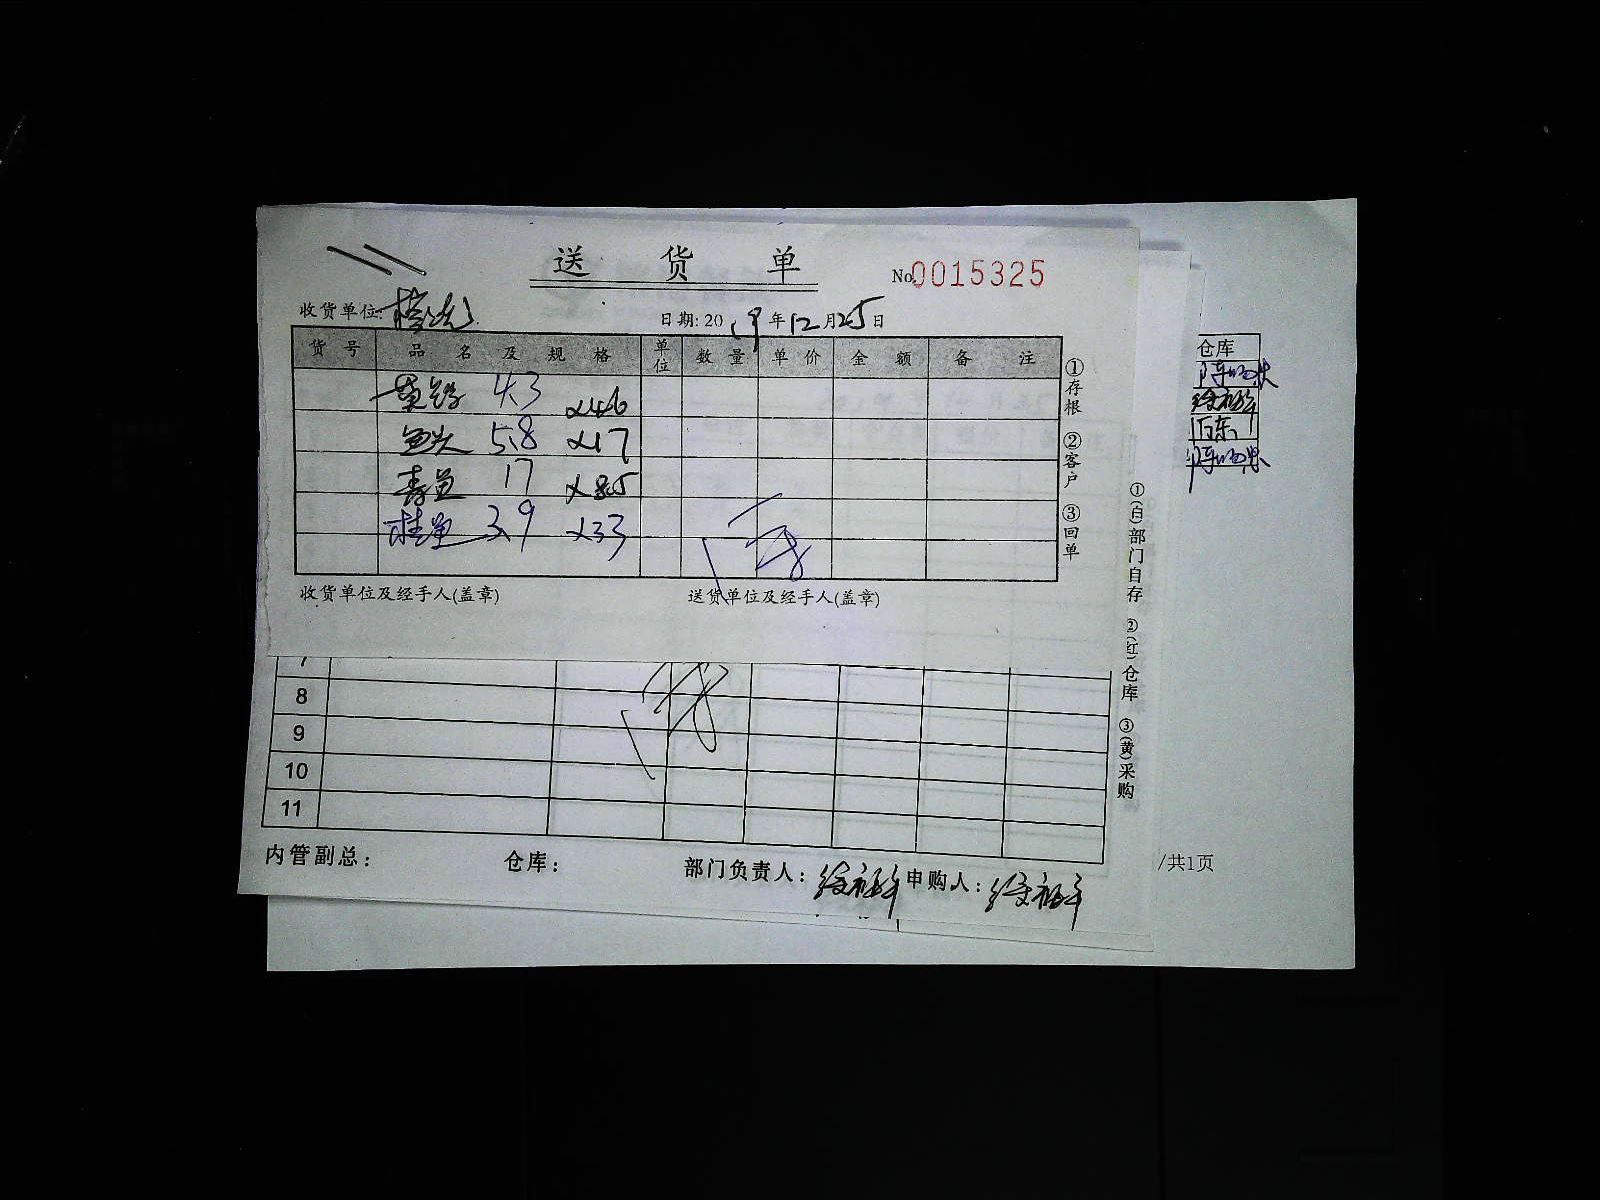 送 货 单
No.0015325
收货单位:
日期: 2019年12月25日
货号 品名及规格 单位 数量 单价 金额 备注
4.3 ×46
鱼头 5.8 ×17
青鱼 17 ×8.5
桂鱼 3.9 ×33
①存根 ②客户 ③回单
收货单位及经手人(盖章) 送货单位及经手人(盖章)
7
8
9
10
11
①(白)部门自存 ②(红)仓库 ③(黄)采购
内管副总: 仓库: 部门负责人: 申购人:
仓库
/共1页